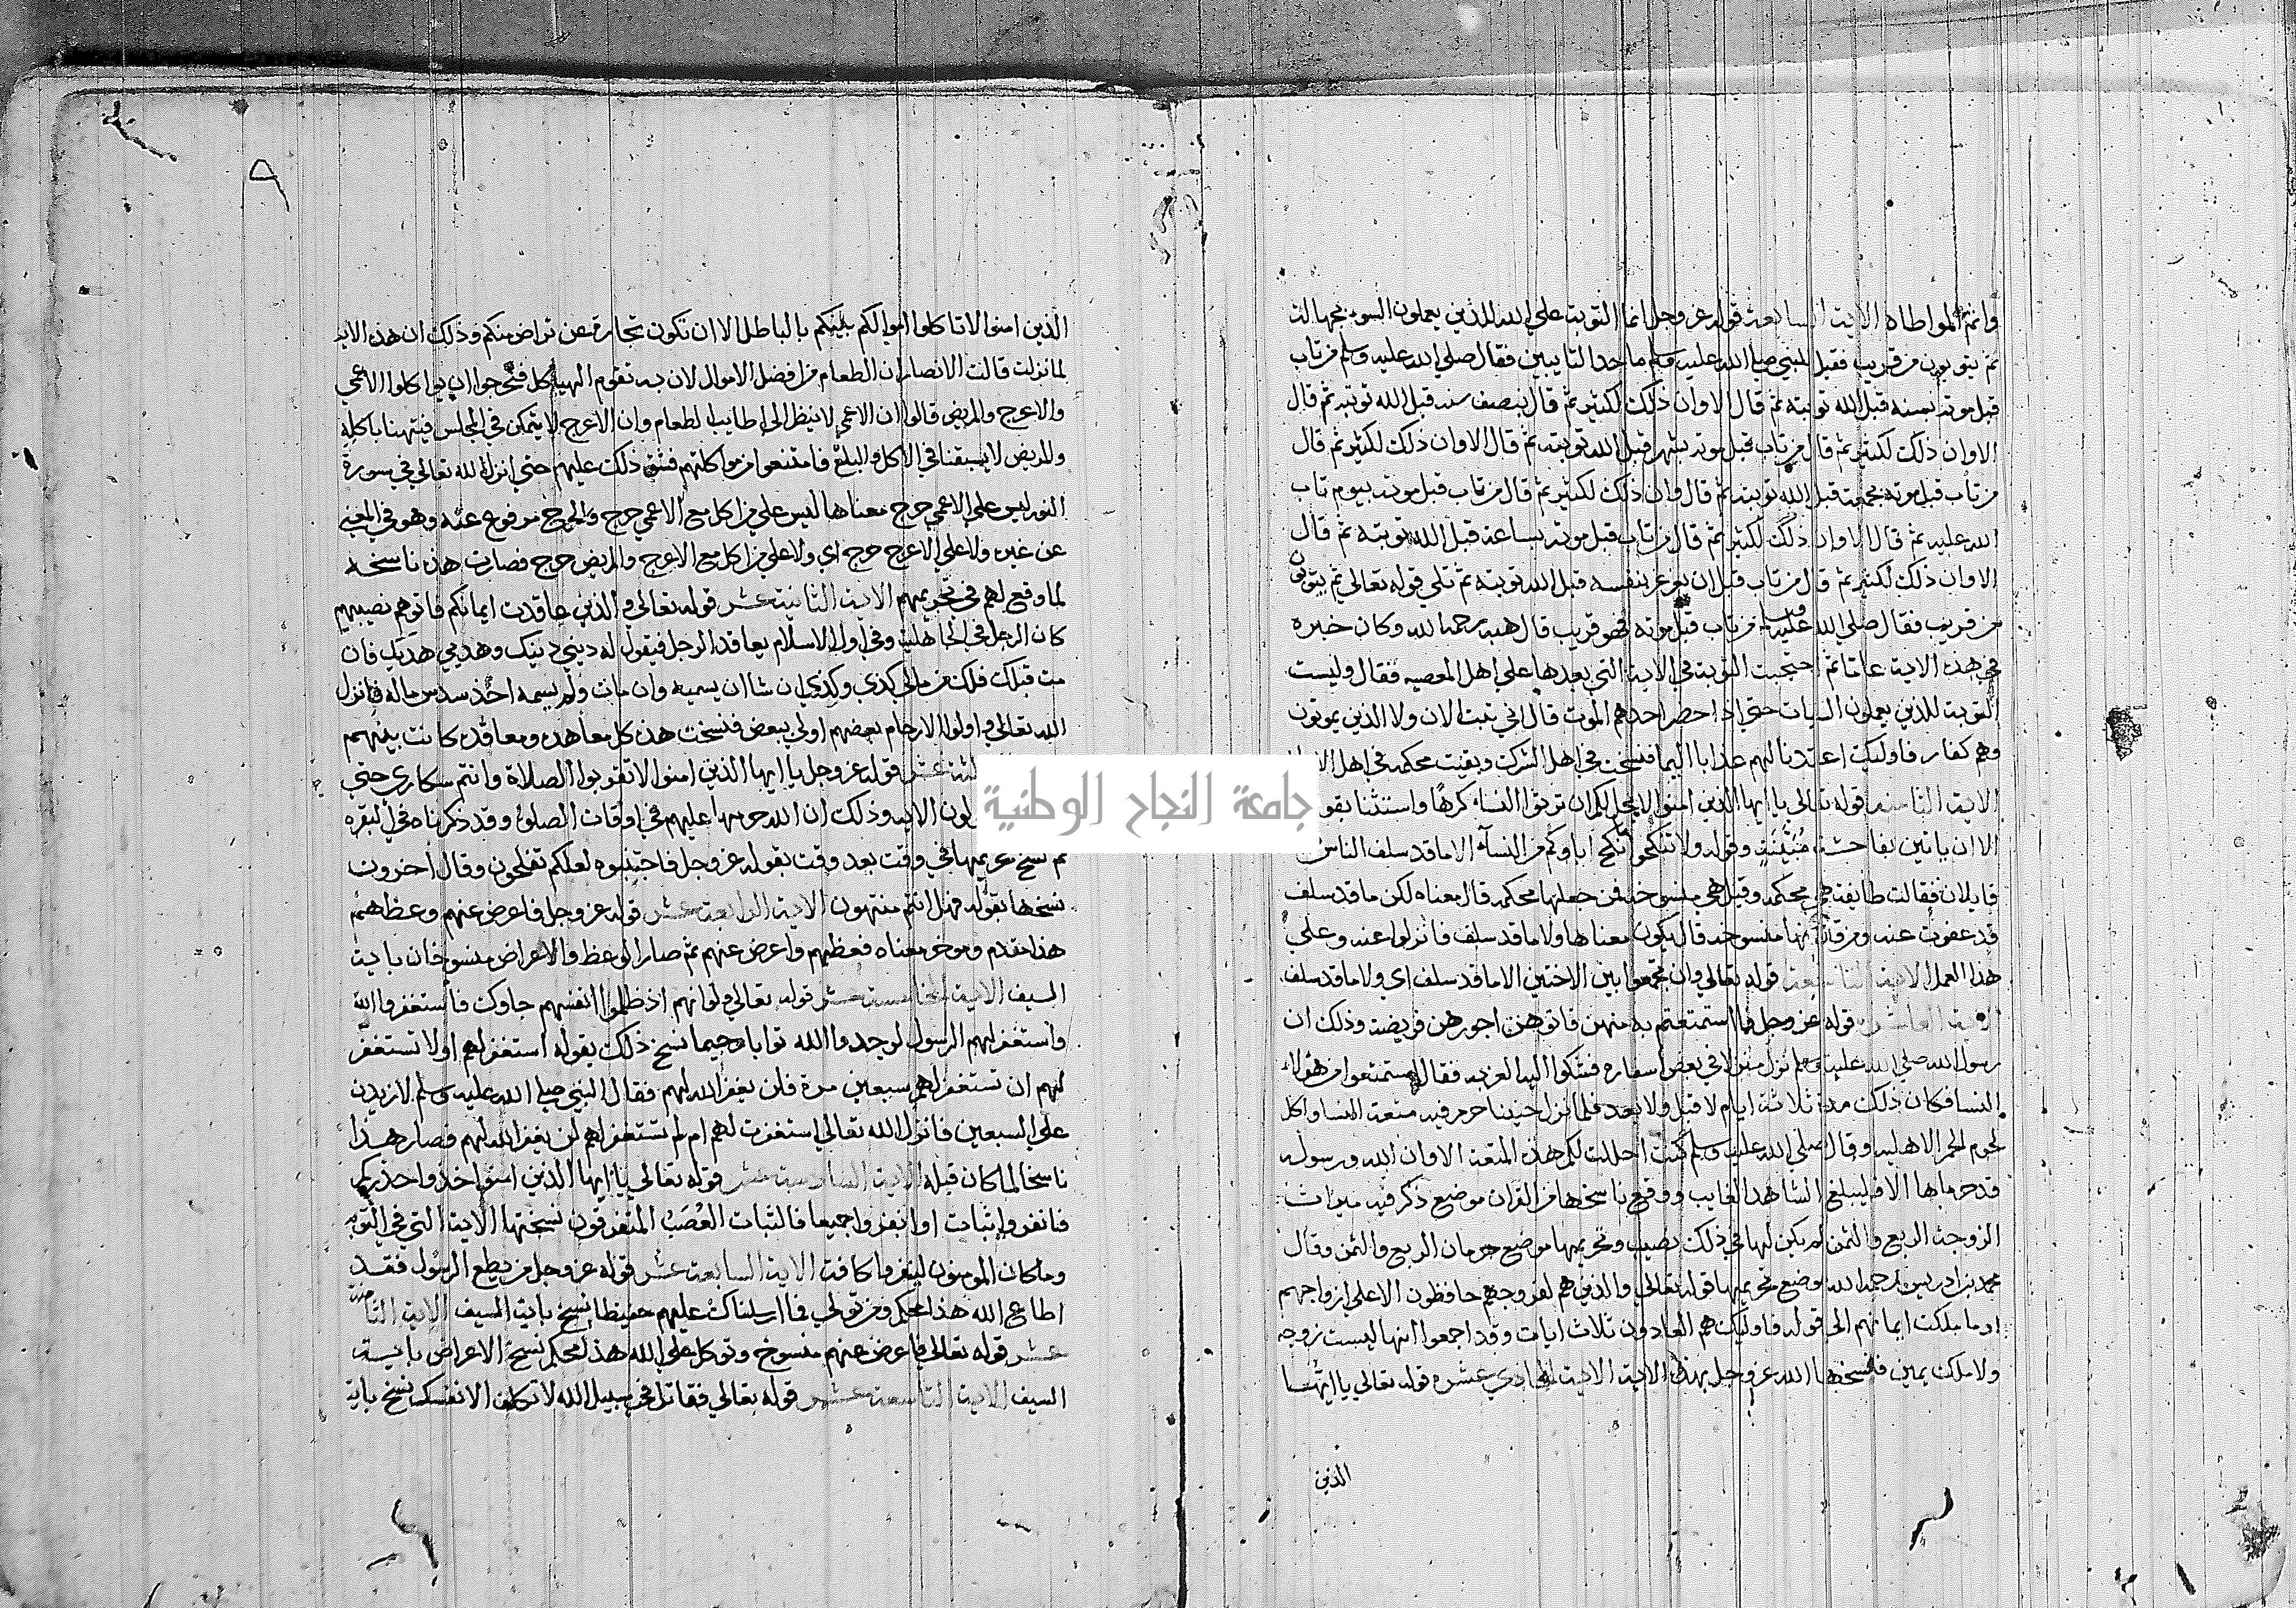 وانتم المواطاه الاية السابعة قوله عز وجل انما التوبة علي الله للذين يعملون السوء بجهالة
ثم يتوبون من قريب فقيل للنبي صلي الله عليه وسلم ما حد التايبين فقال صلي الله عليه وسلم من تاب
قبل موته بسنه قبل الله توبته ثم قال الا وان ذلك لكثير ثم قال بنصف سنه قبل الله توبته ثم قال
الا وان ذلك لكثير ثم قال من تاب قبل موته بشهر قبل الله توبته ثم قال الا وان ذلك لكثير ثم قال
من تاب قبل موته بجمعة قبل الله توبته ثم قال وان ذلك لكثير ثم قال من تاب قبل موته بيوم تاب
الله عليه ثم قال الا وان ذلك لكثير ثم قال من تاب قبل موته بساعة قبل الله توبته ثم قال
الا وان ذلك لكثير ثم قال من تاب قبل ان يغرغر بنفسه قبل الله توبته ثم تلي قوله تعالي ثم يتوبون
من قريب فقال صلي الله عليه وسلم من تاب قبل موته فهو قريب قال هبه رحمه الله وكان خبره
في هذه الاية عاما ثم احتجبت التوبة في الاية التي بعدها علي اهل المعصيه فقال وليست
التوبة للذين يعملون السيات حتي اذا حضر احدهم الموت قال اني تبت الان ولا الذين يموتون
وهم كفار فاوليك اعتدنا لهم عذابا اليما فنسخت في اهل الشرك وبقيت محكمه في اهل
الاية الثامنه قوله تعالي يا ايها الذين امنوا لا يحل لكم ان ترثوا النساء كرها واستثنا بقو
الا ان ياتين بفاحشة مبينة وقوله ولا تنكحوا ما نكح اباوكم من النسآء الا ما قد سلف الناس
قايلان فقالت طايفة هي محكمه وقيل هي منسوخه فمن جعلها محكمه قال معناه لكن ما قد سلف
قد عفوت عنه ومن قال انها منسوخه قال يكون معناها ولا ما قد سلف فانزلوا عنه وعلي
هذا العمل الاية التاسعة قوله تعالي وان تجمعوا بين الاختين الا ما قد سلف اي ولا ما قد سلف
الاية العاشره قوله عز وجل فما استمتعتم به منهن فاتوهن اجورهن فريضة وذلك ان
رسول الله صلي الله عليه وسلم نزل منزلا في بعض اسفاره فشكوا اليه العزبه فقال استمتعوا من هؤلاء
النسا فكان ذلك مدة ثلاثة ايام لا قبل ولا بعد فلما نزل حنينا حرم فيه متعة النسا واكل
لحوم الحمر الاهليه وقال صلي الله عليه وسلم كنت احللت لكم هذه المتعة الا وان الله ورسوله
قد حرماها الا فليبلغ الشاهد الغايب ووقع ناسخها من القران موضع ذكر فيه ميراث
الزوجة الربع والثمن لم يكن لها في ذلك نصيب وتحريمها موضع حرمان الربع والثمن وقال
محمد بن ادريس رحمه الله موضع تحريمها قوله تعالي والذين هم لفروجهم حافظون الا علي ازواجهم
او ما ملكت ايمانهم الي قوله فاوليك هم العادون ثلاث ايات وقد اجمعوا انها ليست زوجه
ولا ملك يمين فنسخها الله عز وجل بهذه الاية الاية الحادي عشره قوله تعالي يا ايها
الذين
جامعة النجاح الوطنية
٩
الذين امنوا لا تاكلوا اموالكم بينكم بالباطل الا ان تكون تجارة عن تراض منكم وذلك ان هذه الايه
لما نزلت قالت الانصار ان الطعام من افضل الاموال لان به تقوم الهياكل فتحرجوا ان يواكلوا الاعمي
والاعرج والمريض قالوا ان الاعمي لا ينظر الي اطايب الطعام وان الاعرج لا يتمكن في المجلس فيتهنا باكله
والمريض لا يسبقنا في الاكل والبلع فامتنعوا من مواكلتهم فشق ذلك عليهم حتي انزل الله تعالي في سورة
النور ليس علي الاعمي حرج معناها ليس علي من اكل مع الاعمي حرج والحرج مرفوع عنه وهو في المعني
عن غيره ولا علي الاعرج حرج اي ولا علي من اكل مع الاعرج والمريض حرج فصارت هذه ناسخه
لما وقع لهم في تحريمهم الاية الثانية عشر قوله تعالي والذين عاقدت ايمانكم فاتوهم نصيبهم
كان الرجل في الجاهلية وفي اول الاسلام يعاقد الرجل فيقول له ديني دينك وهدمي هدمك فان
مت قبلك فلك من مالي كذي وكذي ان شا ان يسميه وان مات ولم يسمه اخذ سدس ماله فانزل
الله تعالي واولوا الارحام بعضهم اولي ببعض فنسخت هذه كل معاهده ومعاقده كانت بينهم
لثة عشر قوله عز وجل يا ايها الذين امنوا لا تقربوا الصلاة وانتم سكاري حتي
لون الايه وذلك ان الله حرمها عليهم في اوقات الصلوة وقد ذكرناه في البقره
ثم نسخ تحريمها في وقت بعد وقت بقوله عز وجل فاجتنبوه لعلكم تفلحون وقال اخرون
نسخها بقوله فهل انتم منتهون الاية الرابعة عشر قوله عز وجل فاعرض عنهم وعظهم
هذا مقدم وموخر معناه فعظهم واعرض عنهم ثم صار الوعظ والاعراض منسوخان باية
السيف الاية الخامسة عشر قوله تعالي ولو انهم اذ ظلموا انفسهم جاوك فاستغفروا الله
واستغفر لهم الرسول لوجدوا الله توابا رحيما نسخ ذلك بقوله استغفر لهم او لا تستغفر
لهم ان تستغفر لهم سبعين مرة فلن يغفر الله لهم فقال النبي صلي الله عليه وسلم لازيدن
علي السبعين فانزل الله تعالي استغفرت لهم ام لم تستغفر لهم لن يغفر الله لهم فصار هذا
ناسخا لما كان قبله الاية السادسة عشر قوله تعالي يا ايها الذين امنوا خذوا حذركم
فانفروا ثبات او انفروا جميعا فالثبات العصب المتفرقون نسختها الاية التي في التوبه
وما كان المومنون لينفروا كافة الاية السابعة عشر قوله عز وجل من يطع الرسول فقد
اطاع الله هذا محكم ومن تولي فما ارسلناك عليهم حفيظا نسخ باية السيف الاية الثامنة
عشر قوله تعالي فاعرض عنهم منسوخ وتوكل علي الله هذا محكم نسخ الاعراض باية
السيف الاية التاسعة عشر قوله تعالي فقاتل في سبيل الله لا تكلف الا نفسك نسخ باية